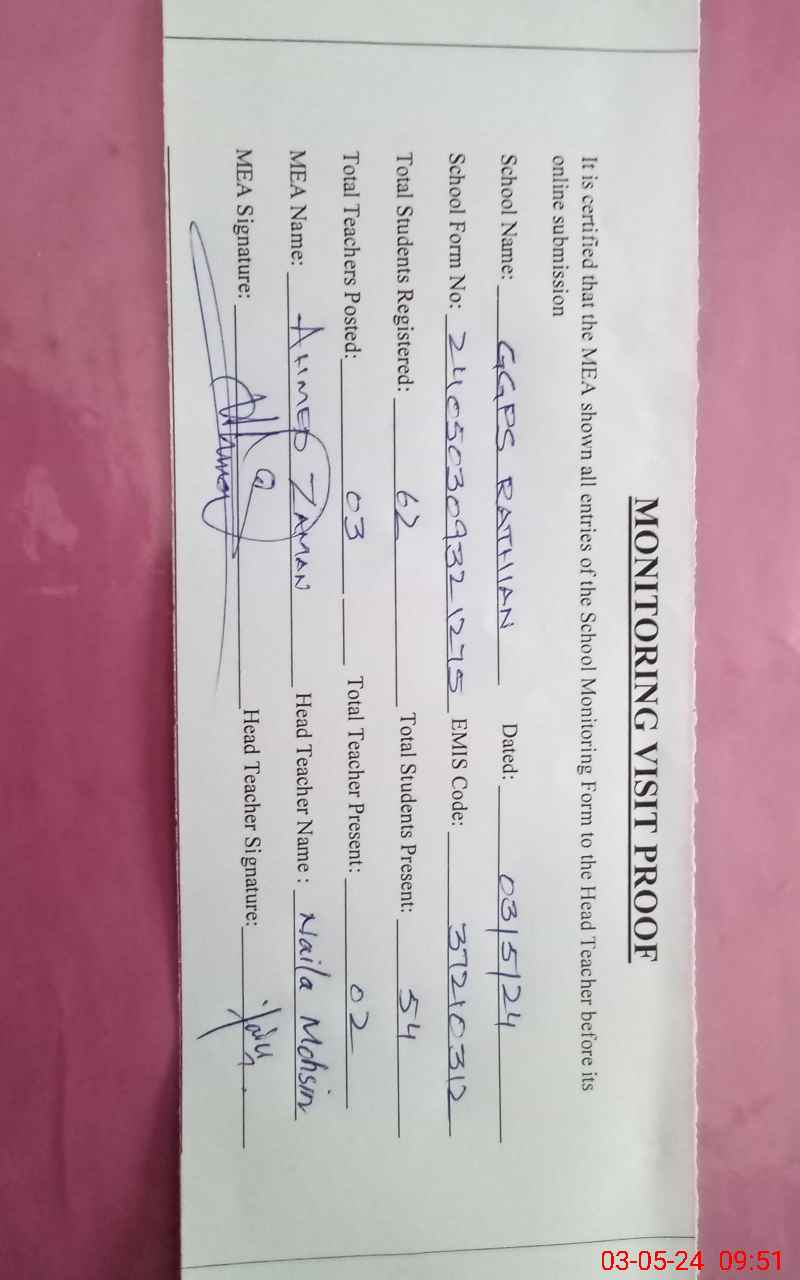 MONITORING VISIT PROOF
It is certified that the MEA shown all entries of the School Monitoring Form to the Head Teacher before its
online submission
School Name: GGPS RATHIAN Dated: 03/5/24
School Form No: 2405030932 1275 EMIS Code: 37210312
Total Students Registered: 62 Total Students Present: 54
Total Teachers Posted: 03 Total Teacher Present: 02
MEA Name: AHMED ZAMAN Head Teacher Name : Naila Mohsin
MEA Signature: Head Teacher Signature:
03-05-24 09:51